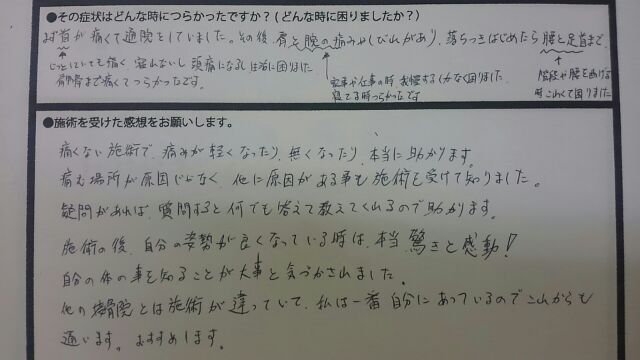 ●その症状はどんな時につらかったですか？(どんな時に困りましたか？)
まず首が痛くて通院をしていました。その後、肩と腕の痛みや(しびれがあり)、落ちつきはじめたら腰と足首まで。
じっとしていても痛く、寝れないし頭痛になるし生活に困りました
背骨まで痛くてつらかったです。
家事や仕事の時、我慢するしかなく困りました
寝てる時つらかったです
階段や腰を曲げる
時こわくて困りました
●施術を受けた感想をお願いします。
痛くない施術で、痛みが軽くなったり、無くなったり、本当に助かります。
痛む場所が原因じゃなく、他に原因がある事も施術を受けて知りました。
疑問があれば、質問すると何でも答えて教えてくれるので助かります。
施術の後、自分の姿勢が良くなっている時は、本当驚きと感動！
自分の体の事を知ることが大事と気づかされました。
他の接骨院とは施術が違っていて、私は一番自分にあっているのでこれからも
通います。おすすめします。